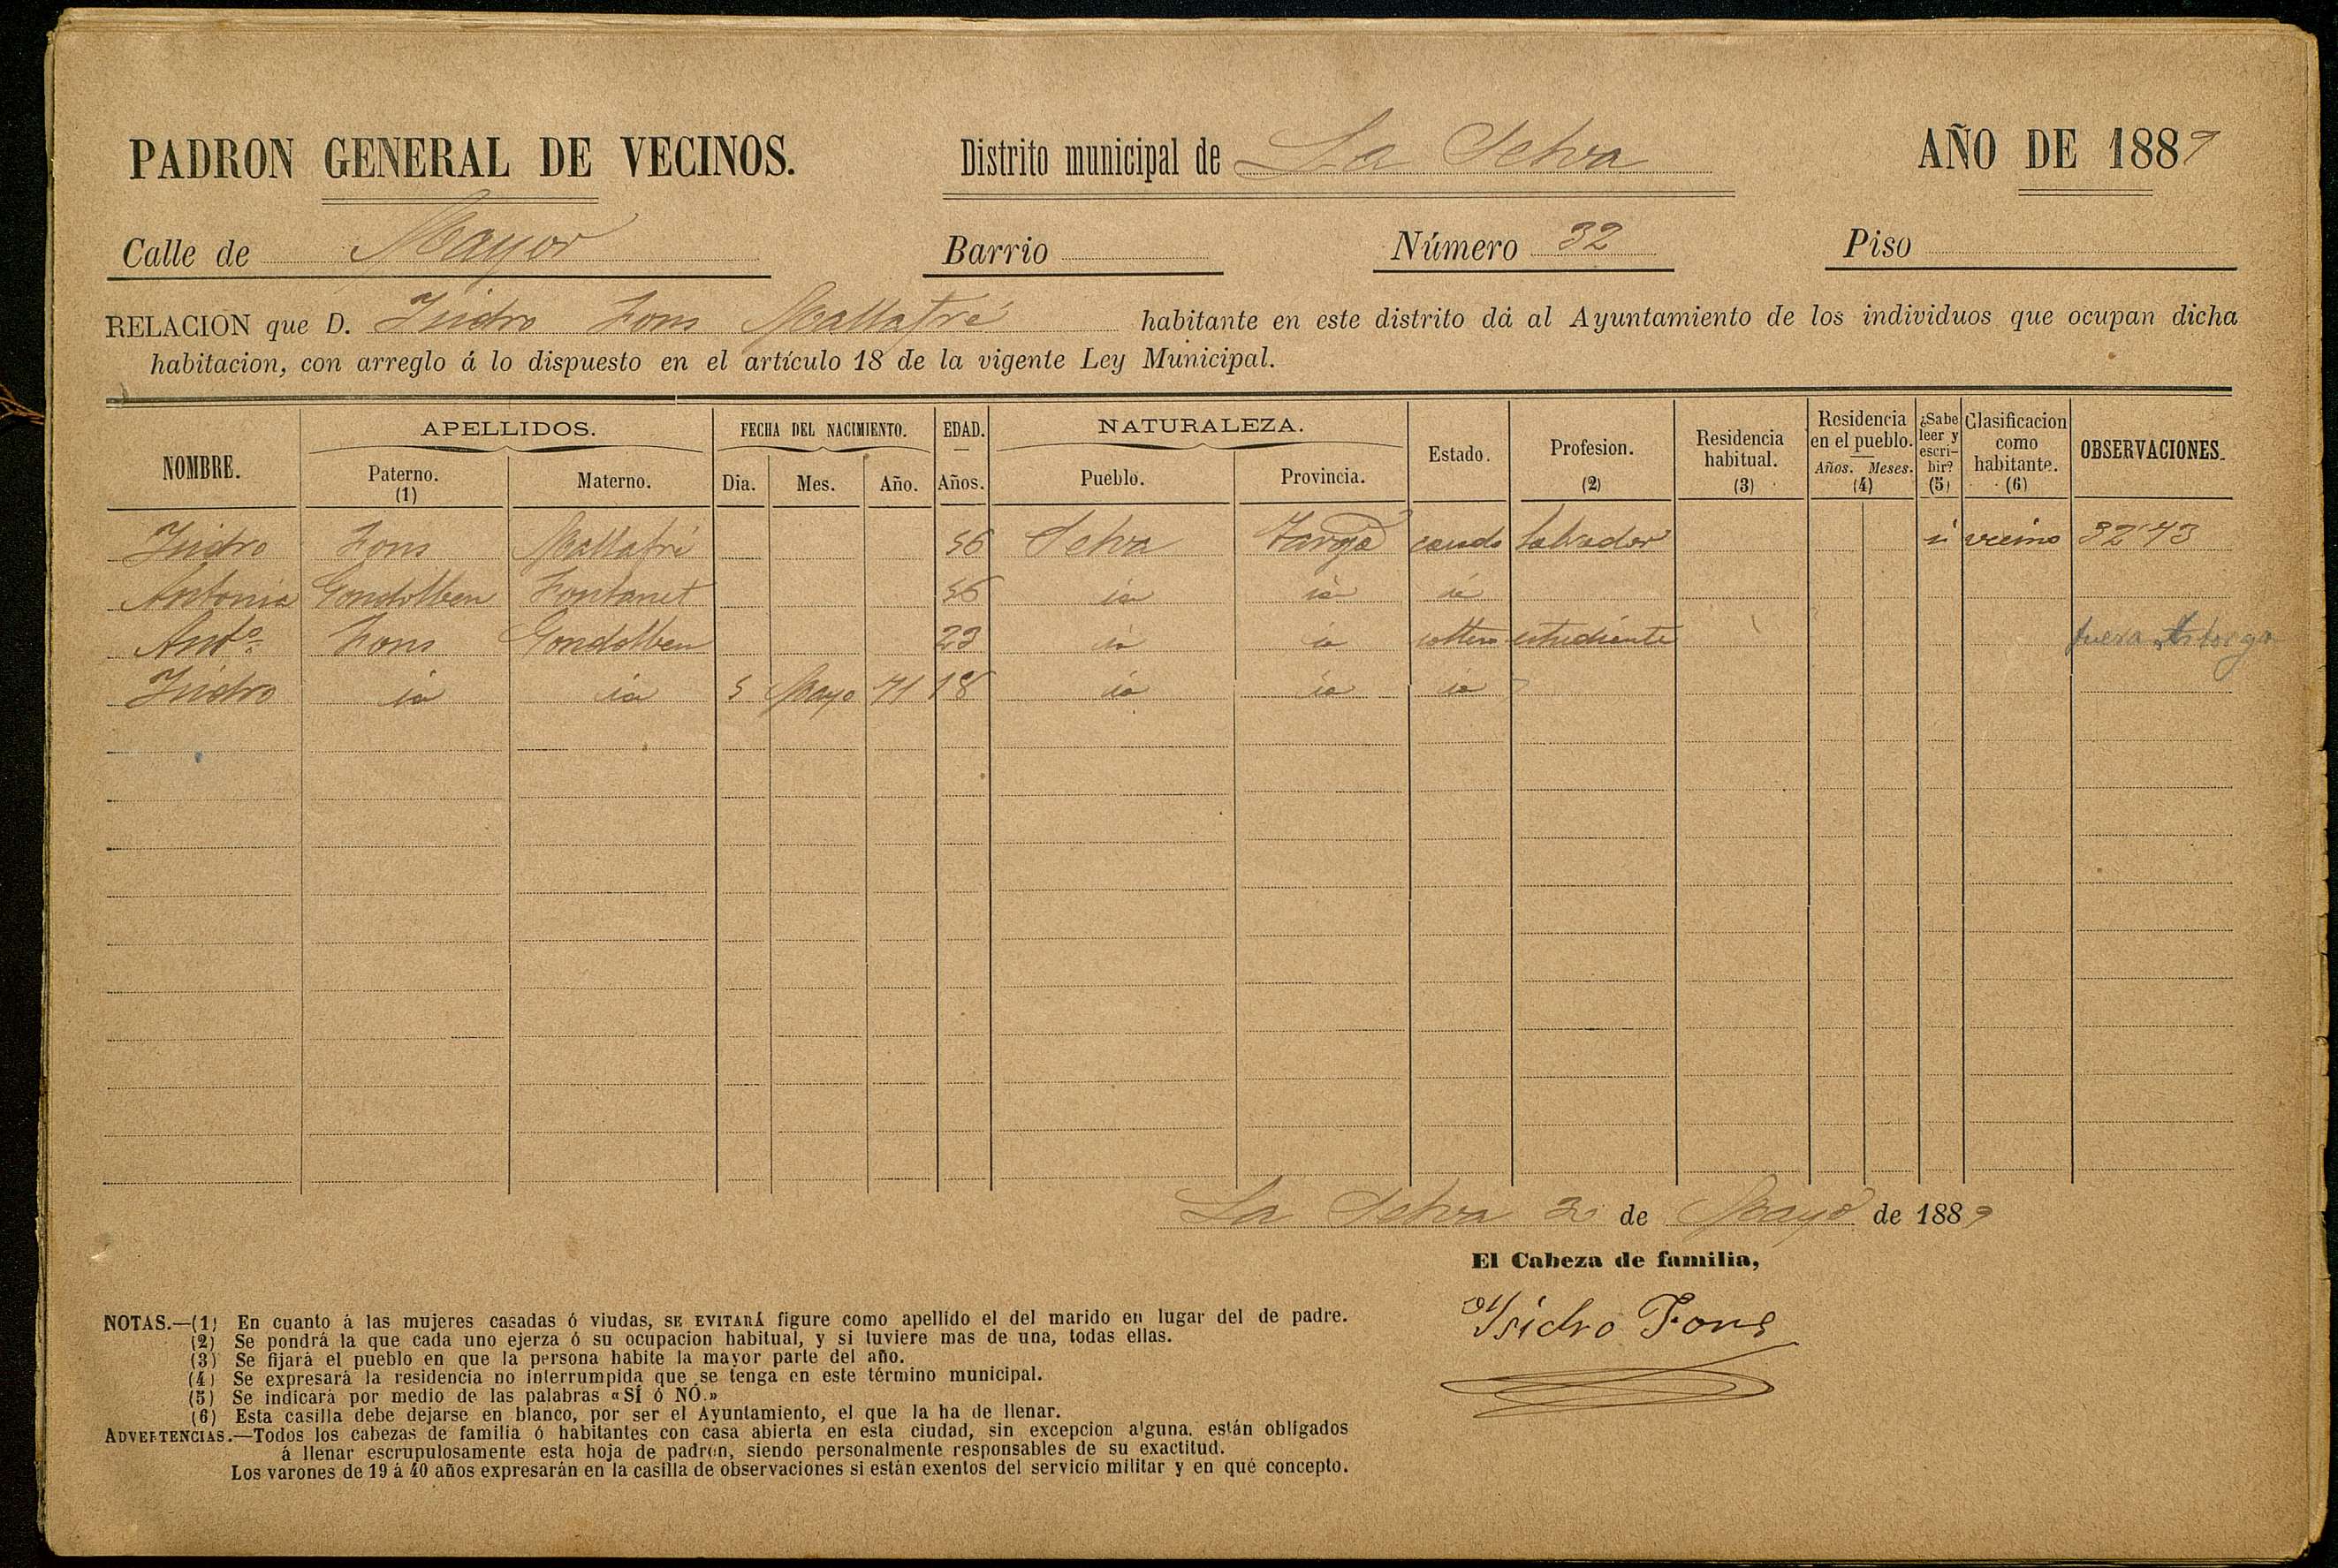 PADRON GENERAL DE VECINOS. Distrito municipal de La Selva AÑO DE 1889
Calle de Mayor Barrio Número 32 Piso
RELACION que D. Isidro Fons Mallafré habitante en este distrito dá al Ayuntamiento de los individuos que ocupan dicha
habitacion, con arreglo á lo dispuesto en el artículo 18 de la vigente Ley Municipal.
NOMBRE. APELLIDOS. FECHA DEL NACIMIENTO. EDAD. NATURALEZA. Estado. Profesion. (2) Residencia habitual. (3) Residencia en el pueblo. (4) ¿Sabe leer y escribir? (5) Clasificacion como habitante. (6) OBSERVACIONES.
Paterno. (1) Materno. Dia. Mes. Año. Años. Pueblo. Provincia. Años. Meses.
Isidro Fons Mallafré 56 Selva casado labrador si vecino 32'73
Antonia Fontanet 56 id id id
Antº Fons 23 id id soltero estudiente fuera Astorga
Isidro id id 5 Mayo 71 18 id id id
La Selva de Mayo de 1889
El Cabeza de familia,
Isidro Fons
NOTAS.—(1) En cuanto á las mujeres casadas ó viudas, SE EVITARÁ figure como apellido el del marido en lugar del de padre.
(2) Se pondrá la que cada uno ejerza ó su ocupacion habitual, y si tuviere mas de una, todas ellas.
(3) Se fijará el pueblo en que la persona habite la mayor parte del año.
(4) Se expresará la residencia no interrumpida que se tenga en este término municipal.
(5) Se indicará por medio de las palabras «SÍ ó NÓ.»
(6) Esta casilla debe dejarse en blanco, por ser el Ayuntamiento, el que la ha de llenar.
ADVERTENCIAS.—Todos los cabezas de familia ó habitantes con casa abierta en esta ciudad, sin excepcion alguna, están obligados
á llenar escrupulosamente esta hoja de padron, siendo personalmente responsables de su exactitud.
Los varones de 19 á 40 años expresarán en la casilla de observaciones si están exentos del servicio militar y en qué concepto.